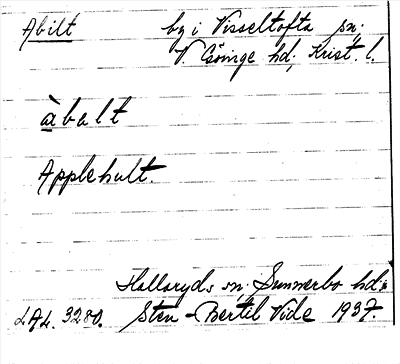 Abilt by i Visseltofta sn;
V. Göinge hd; Krist. l.
àbalt
Applehult.
Hallaryds sn; Sunnerbo hd;
LAL. 3280. Sten-Bertil Vide 1937.